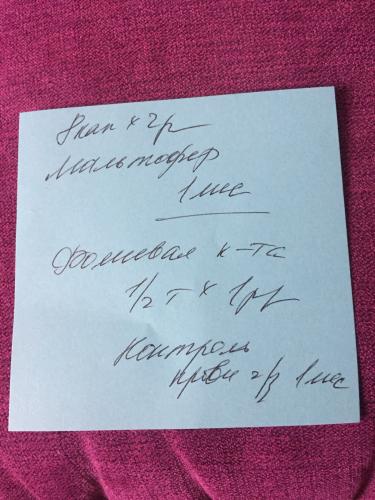 8 кап × 2р
Мальтофер
1 мес
Фолиевая к-та
1/2 т × 1рд
Контроль
крови ч/з 1 мес